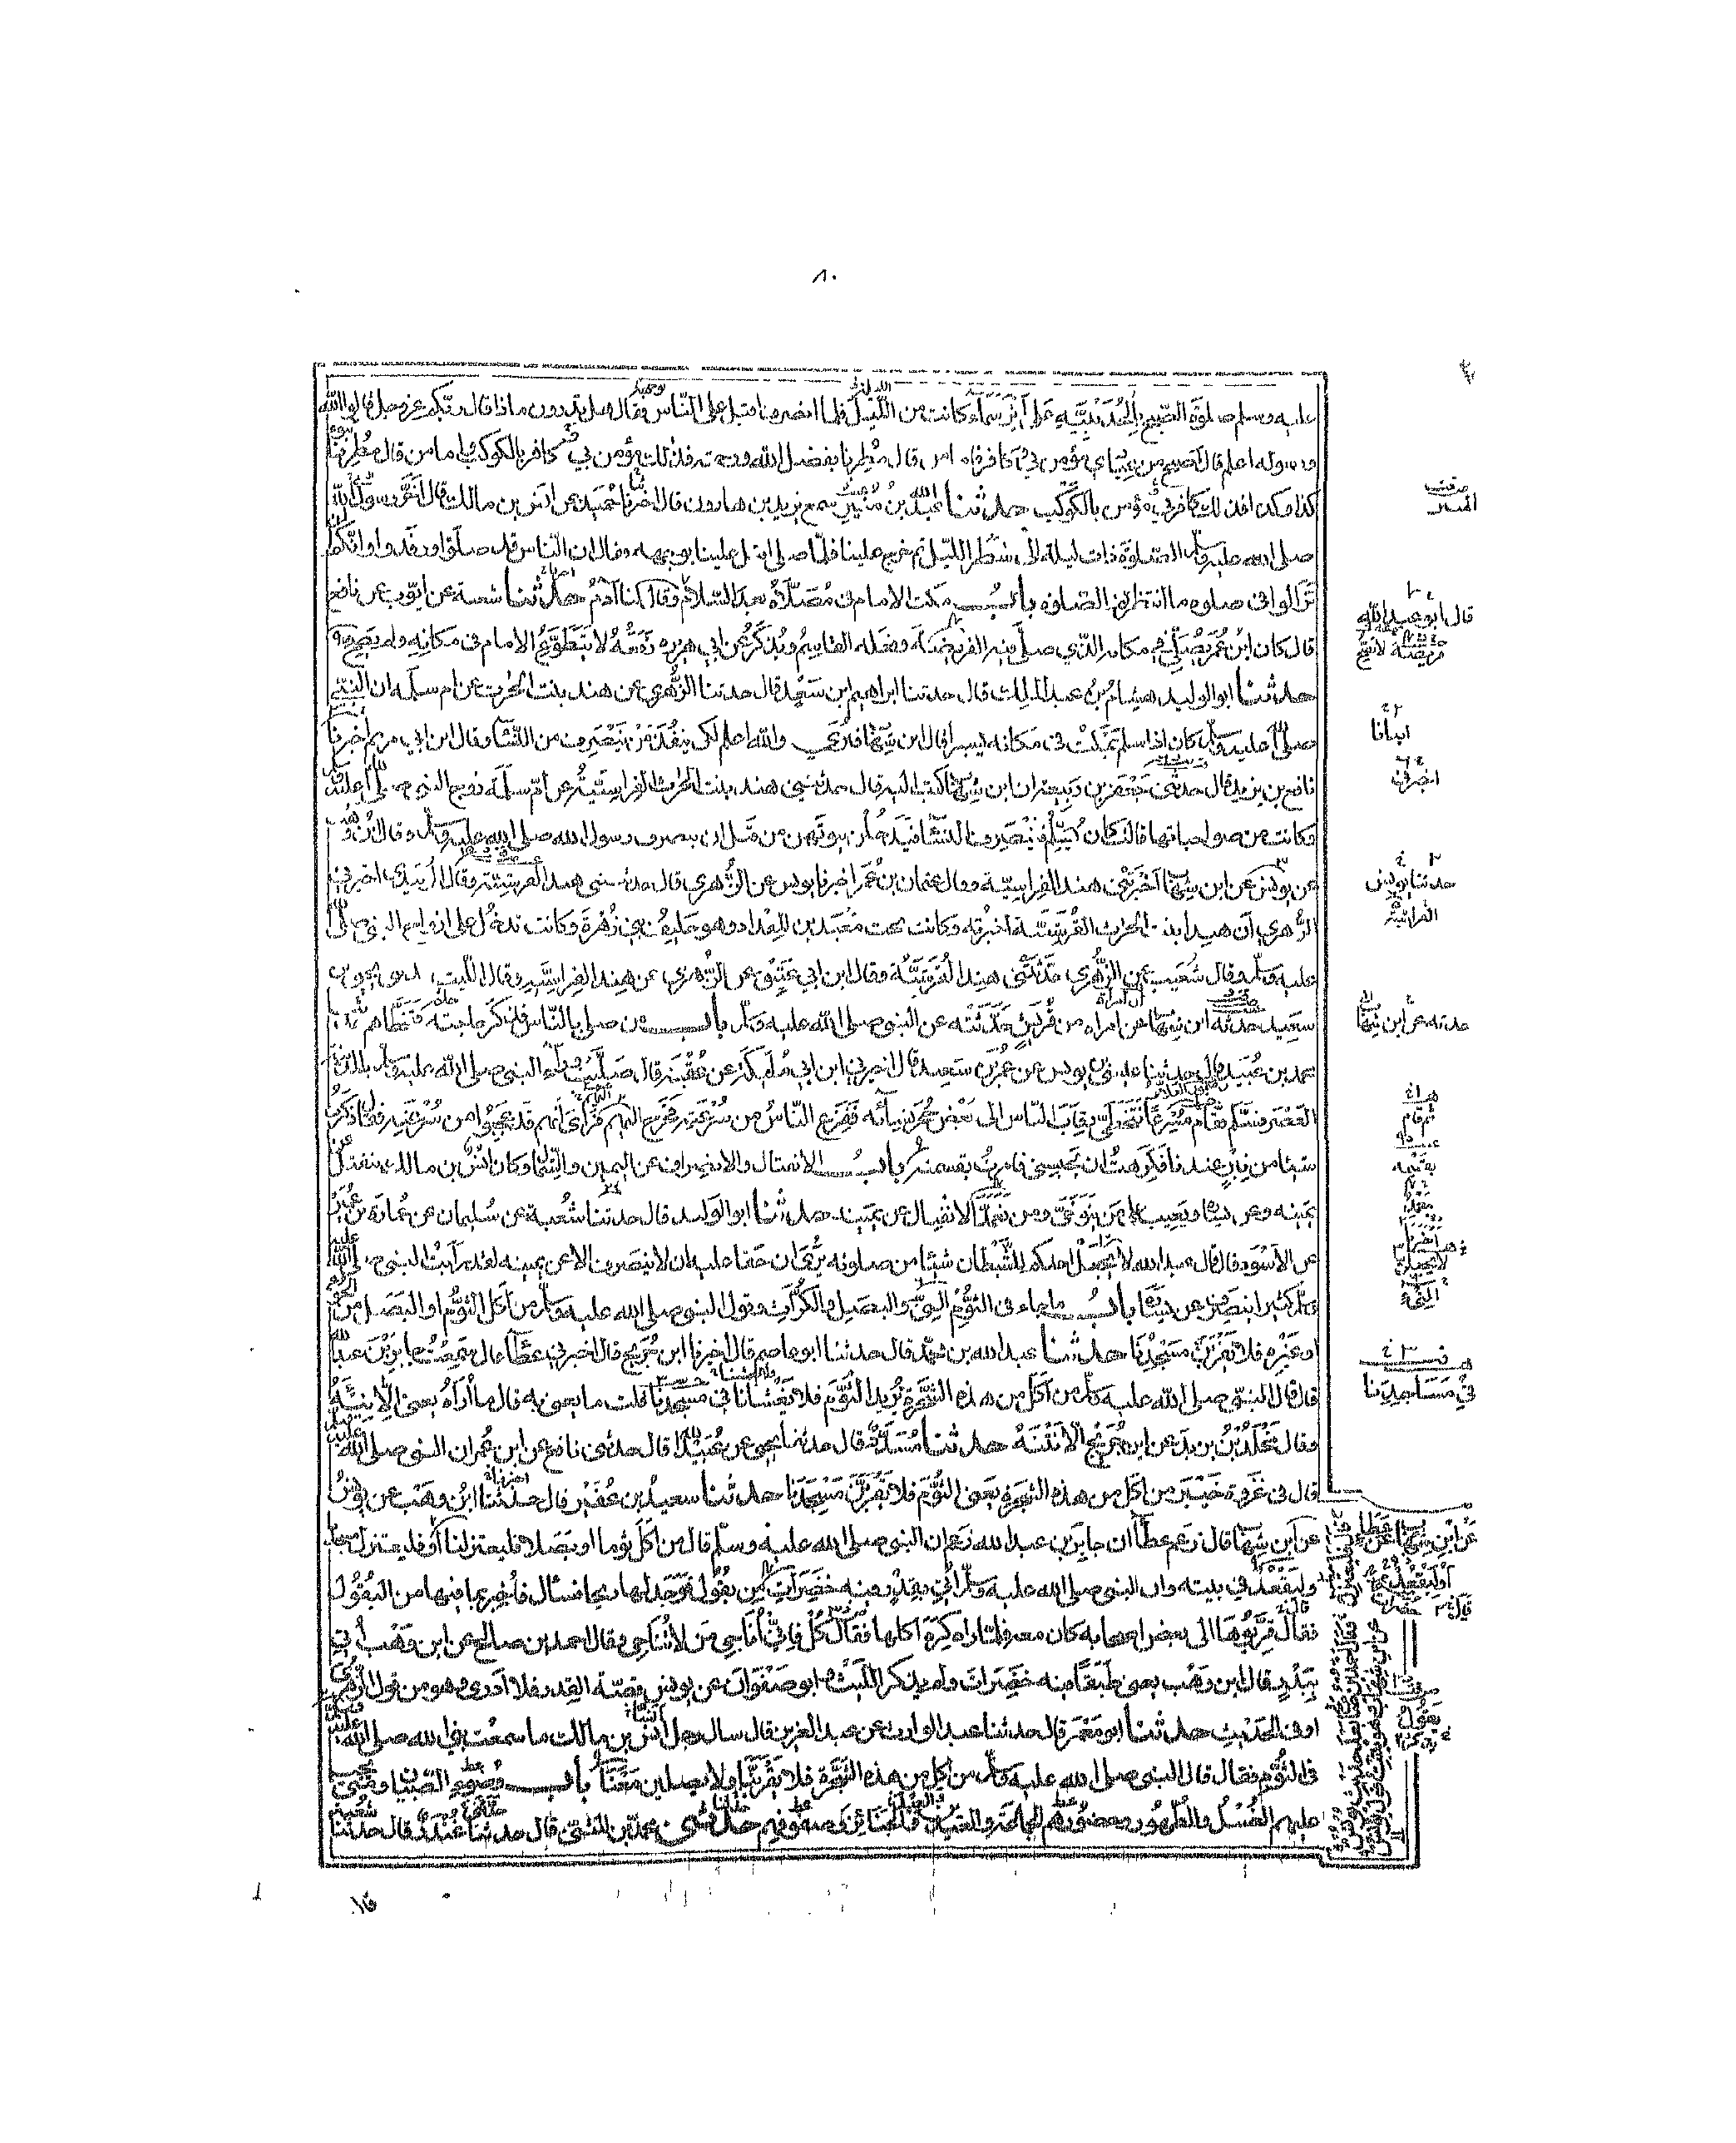 ٨٠
عليه وسلم صلوة الصبح بالحديبية على اثر سماء كانت من الليل فلما انصرف اقبل على الناس فقال هل تدرون ماذا قال ربكم عز وجل قالوا الله
ورسوله اعلم قال اصبح من عبادي مؤمن بي وكافر فاما من قال مطرنا بفضل الله ورحمته فذلك مؤمن بي كافر بالكوكب واما من قال مطرنا بنوء
كذا وكذا فذلك كافر بي مؤمن بالكوكب حدثنا عبد الله بن منير سمع يزيد بن هارون قال اخبرنا حميد عن انس بن مالك قال اخر رسول الله
صلى الله عليه وسلم الصلوة ذات ليلة الى شطر الليل ثم خرج علينا فلما صلى اقبل علينا بوجهه وقال ان الناس قد صلوا ورقدوا وانكم لن
تزالوا في صلوة ما انتظرتم الصلوة باب مكث الامام في مصلاه بعد السلام وقال لنا آدم حدثنا شعبة عن ايوب عن نافع
قال كان ابن عمر يصلي في مكانه الذي صلى فيه الفريضة وفعله القاسم ويذكر عن ابي هريرة رفعه لا يتطوع الامام في مكانه ولم يصح
حدثنا ابو الوليد هشام بن عبد الملك قال حدثنا ابراهيم ابن سعد قال حدثنا الزهري عن هند بنت الحرث عن ام سلمة ان النبي
صلى الله عليه وسلم كان اذا سلم يمكث في مكانه يسيرا قال ابن شهاب فنرى والله اعلم لكي ينفذ من ينصرف من النساء وقال ابن ابي مريم اخبرنا
نافع بن يزيد قال حدثني جعفر بن ربيعة ان ابن شهاب كتب اليه قال حدثتني هند بنت الحرث الفراسية عن ام سلمة زوج النبي صلى الله عليه
وكانت من صواحباتها قالت كان يسلم فينصرف النساء فيدخلن بيوتهن من قبل ان ينصرف رسول الله صلى الله عليه وسلم وقال ابن وهب
عن يونس عن ابن شهاب اخبرتني هند الفراسية وقال عثمان بن عمر اخبرنا يونس عن الزهري قال حدثتني هند القرشية وقال الزبيدي اخبرني
الزهري ان هند ابنة الحرث القرشية اخبرته وكانت تحت معبد بن المقداد وهو حليف بني زهرة وكانت تدخل على ازواج النبي صلى الله
عليه وسلم وقال شعيب عن الزهري حدثتني هند القرشية وقال ابن ابي عتيق عن الزهري عن هند الفراسية وقال الليث حدثني يحيى بن
سعيد حدثه ابن شهاب عن امراة من قريش حدثته عن النبي صلى الله عليه وسلم باب من صلى بالناس فذكر حاجته فتخطاهم حدثنا
محمد بن عبيد قال حدثنا عيسى بن يونس عن عمر بن سعيد قال اخبرني ابن ابي مليكة عن عقبة قال صليت وراء النبي صلى الله عليه وسلم بالمدينة
العصر فسلم فقام مسرعا فتخطى رقاب الناس الى بعض حجر نسائه ففزع الناس من سرعته فخرج اليهم فراى انهم قد عجبوا من سرعته فقال ذكرت
شيئا من تبر عندنا فكرهت ان يحبسني فامرت بقسمته باب الانفتال والانصراف عن اليمين والشمال وكان انس بن مالك ينفتل عن
يمينه وعن يساره ويعيب على من يتوخى ومن تعمد الانفتال عن يمينه حدثنا ابو الوليد قال حدثنا شعبة عن سليمان عن عمارة بن عمير
عن الاسود قال قال عبد الله لا يجعل احدكم للشيطان شيئا من صلوته يرى ان حقا عليه ان لا ينصرف الا عن يمينه لقد رايت النبي صلى الله عليه
وسلم كثيرا ينصرف عن يساره باب ما جاء في الثوم الني والبصل والكراث وقول النبي صلى الله عليه وسلم من اكل الثوم او البصل من الجوع
او غيره فلا يقربن مسجدنا حدثنا عبد الله بن محمد قال حدثنا ابو عاصم قال اخبرنا ابن جريج قال اخبرني عطاء قال سمعت جابر بن عبد الله
قال قال النبي صلى الله عليه وسلم من اكل من هذه الشجرة يريد الثوم فلا يغشانا في مسجدنا قلت ما يعني به قال ما اراه يعني الا نيئه
وقال مخلد بن يزيد عن ابن جريج الا نتنه حدثنا مسدد قال حدثنا يحيى عن عبيد الله قال حدثني نافع عن ابن عمر ان النبي صلى الله عليه
قال في غزوة خيبر من اكل من هذه الشجرة يعني الثوم فلا يقربن مسجدنا حدثنا سعيد بن عفير قال حدثنا ابن وهب عن يونس
عن ابن شهاب قال زعم عطاء ان جابر بن عبد الله زعم ان النبي صلى الله عليه وسلم قال من اكل ثوما او بصلا فليعتزلنا او فليعتزل مسجدنا
وليقعد في بيته وان النبي صلى الله عليه وسلم اتي بقدر فيه خضرات من بقول فوجد لها ريحا فسال فاخبر بما فيها من البقول
فقال قربوها الى بعض اصحابه كان معه فلما راه كره اكلها فقال كل فاني اناجي من لا تناجي وقال احمد بن صالح عن ابن وهب اتي
ببدر قال ابن وهب يعني طبقا فيه خضرات ولم يذكر الليث وابو صفوان عن يونس قصة القدر فلا ادري هو من قول الزهري
او في الحديث حدثنا ابو معمر قال حدثنا عبد الوارث عن عبد العزيز قال سال رجل انس بن مالك ما سمعت نبي الله صلى الله عليه
في الثوم فقال قال النبي صلى الله عليه وسلم من اكل من هذه الشجرة فلا يقربنا ولا يصلين معنا باب وضوء الصبيان ومتى يجب
عليهم الغسل والطهور وحضورهم الجماعة والعيدين والجنائز وصفوفهم حدثني محمد بن المثنى قال حدثنا غندر قال حدثنا شعبة
قال ابو عبد الله
اخبرني
حدثنا يونس
حدثه عن ابن شهاب
في مساجدنا
عن ابن شهاب عن عطاء
او ليقعد